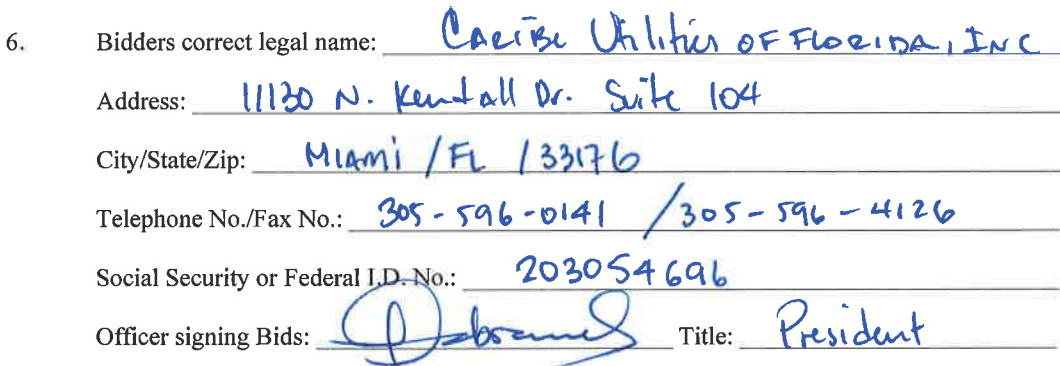 6. Bidders correct legal name: Caribe Utilities OF FLORIDA, INC
Address: 11130 N. Kendall Dr. Suite 104
City/State/Zip: MIAMI / FL / 33176
Telephone No./Fax No.: 305-596-0141 / 305-596-4126
Social Security or Federal I.D. No.: 203054696
Officer signing Bids: Title: President